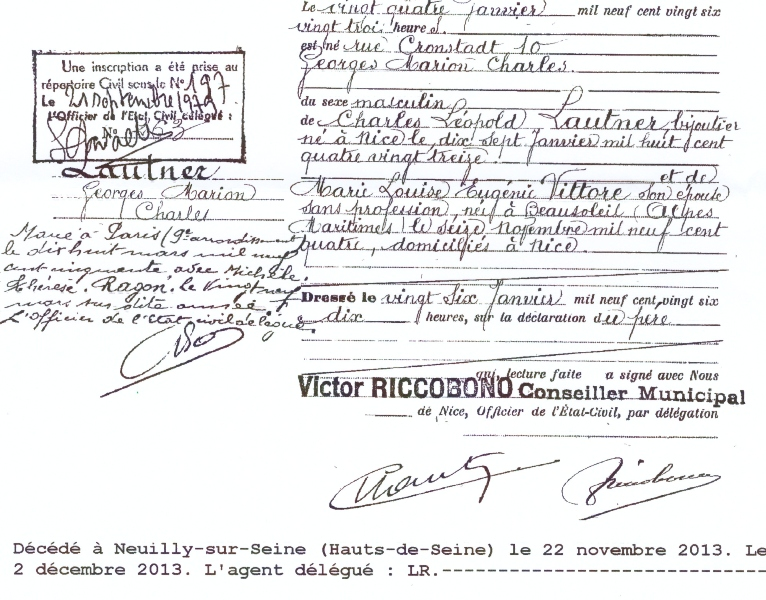 Le vingt quatre janvier mil neuf cent vingt six
vingt trois heures.
est né rue Cronstadt, 10
Georges Marion Charles.
du sexe masculin
de Charles Léopold Lautner, bijoutier
né à Nice le dix sept janvier mil huit cent
quatre vingt treize
et de
Marie Louise Eugénie Vittore son épouse
sans profession, née à Beausoleil (Alpes
Maritimes) le seize novembre mil neuf cent
quatre, domiciliés à Nice.
Dressé le vingt six janvier mil neuf cent vingt six
dix heures, sur la déclaration du père
qui, lecture faite a signé avec Nous
Victor RICCOBONO Conseiller Municipal
de Nice, Officier de l'État-Civil, par délégation
Une inscription a été prise au
répertoire Civil sous le N° 197
Le 21 Septembre 1979
L'Officier de l'Etat Civil délégué :
N°
Lautner
Georges Marion
Charles
Marié à Paris (9e arrondissement
le dix huit mars mil neuf
cent cinquante avec Michèle
Thérèse Ragon. Le vingt neuf
mars sus dite année
L'officier de l'état civil délégué
Décédé à Neuilly-sur-Seine (Hauts-de-Seine) le 22 novembre 2013. Le
2 décembre 2013. L'agent délégué : LR.-----------------------------